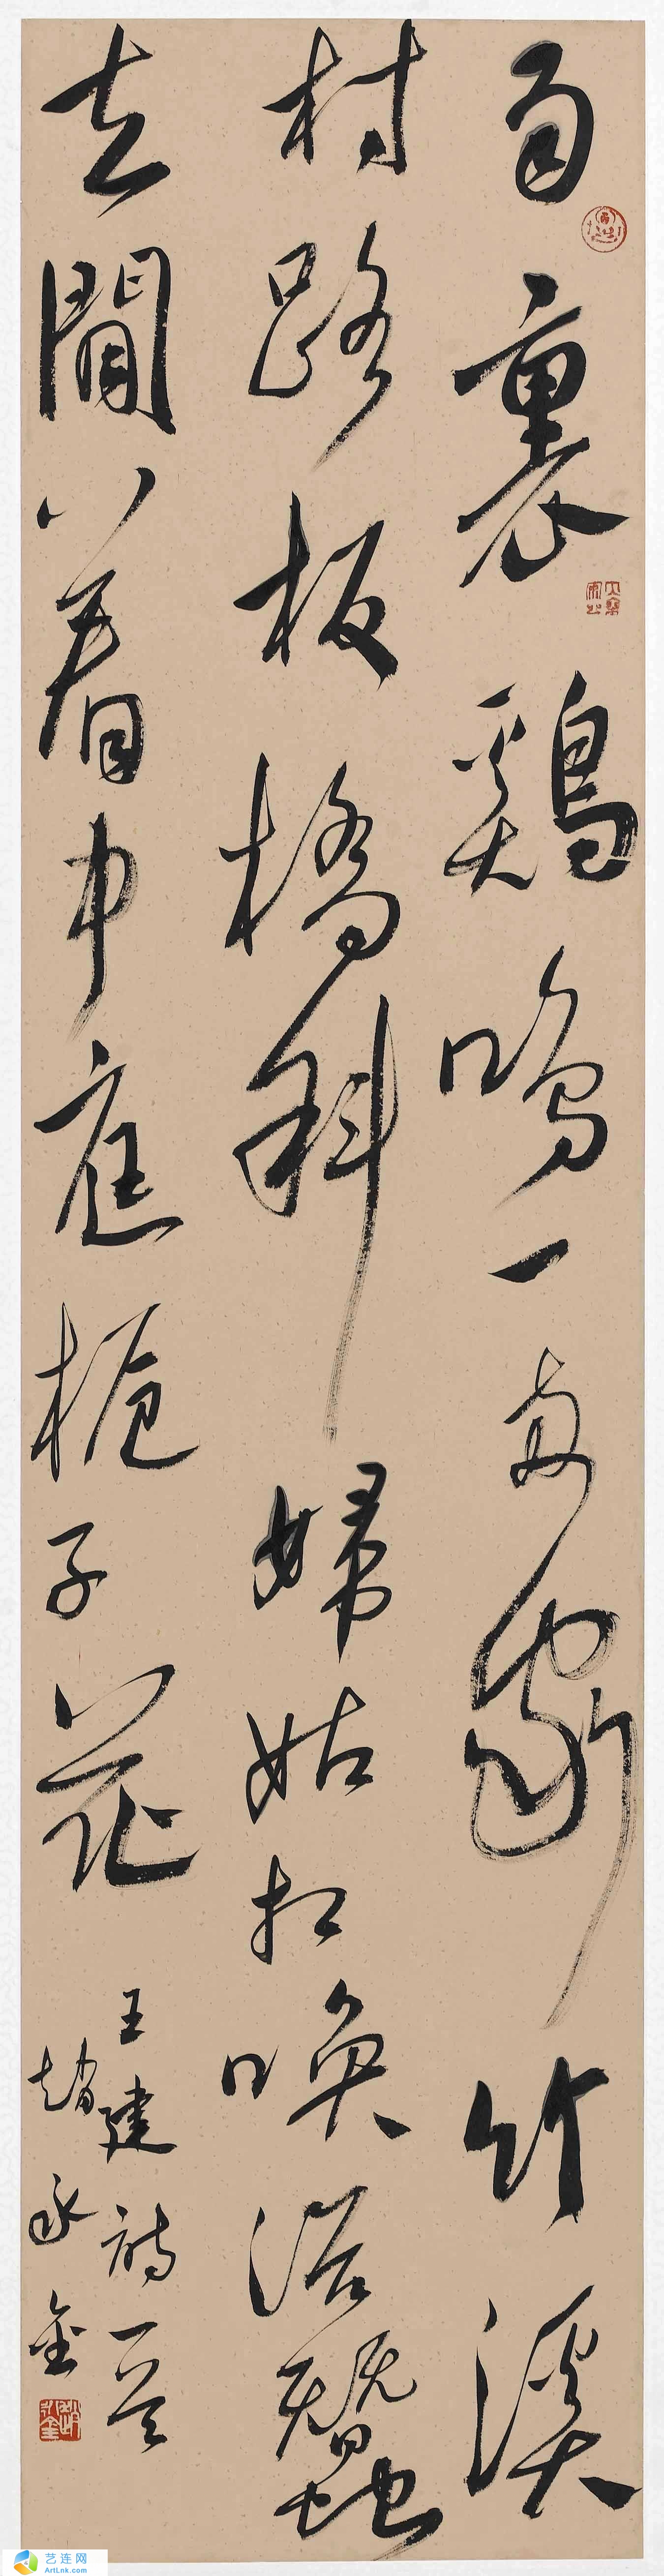 雨裏鷄鳴一两家竹溪
村路板橋斜婦姑相唤浴蠶
去閒看中庭栀子花
王建詩一首
趙金
艺连网
ArtLnk.com